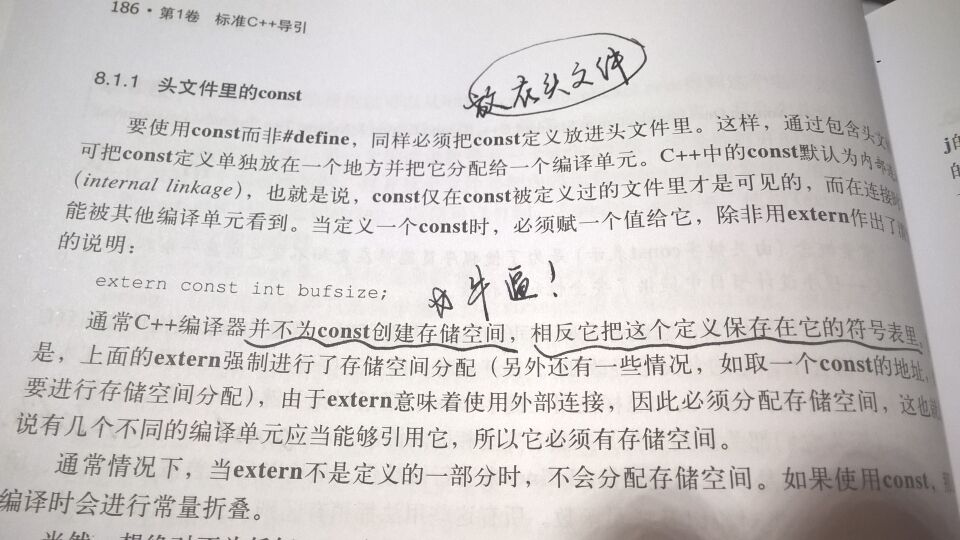 186·第1卷 标准C++导引
放在头文件
8.1.1 头文件里的const
要使用const而非#define，同样必须把const定义放进头文件里。这样，通过包含头文
可把const定义单独放在一个地方并把它分配给一个编译单元。C++中的const默认为内部
(internal linkage)，也就是说，const仅在const被定义过的文件里才是可见的，而在连接时
能被其他编译单元看到。当定义一个const时，必须赋一个值给它，除非用extern作出了
的说明：
extern const int bufsize;
牛逼！
通常C++编译器并不为const创建存储空间，相反它把这个定义保存在它的符号表里，
是，上面的extern强制进行了存储空间分配（另外还有一些情况，如取一个const的地址，
要进行存储空间分配），由于extern意味着使用外部连接，因此必须分配存储空间，这也就
说有几个不同的编译单元应当能够引用它，所以它必须有存储空间。
通常情况下，当extern不是定义的一部分时，不会分配存储空间。如果使用const，那
编译时会进行常量折叠。